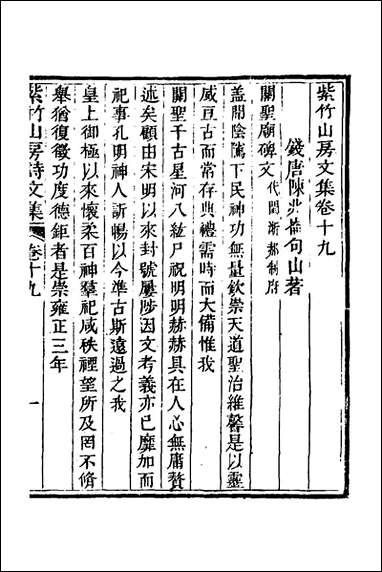 紫竹山房文集卷十九
錢唐陳兆崙句山著
關聖廟碑文代閩浙郝制府
蓋聞陰隲下民神功無量欽崇天道聖治維馨是以靈
威亘古而常存典禮需時而大備惟我
關聖千古星河八紘尸祝明明赫赫具在人心無庸贅
述矣顧由宋明以來封號屢陟因文考義亦已靡加而
祀事孔明神人訢暢以今準古斯遠過之我
皇上御極以來懷柔百神羣祀咸秩禋望所及罔不脩
舉猶復徵功度德鉅者是崇雍正三年
紫竹山房詩文集
卷十九
一